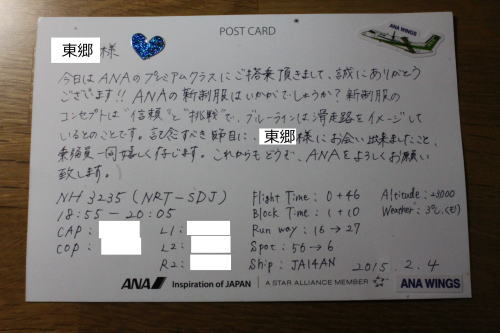 POST CARD
ANA WINGS
東郷 様
今日はANAのプレミアムクラスにご搭乗頂きまして、誠にありがとう
ございます!! ANAの新制服はいかがでしょうか? 新制服の
コンセプトは"信頼"と"挑戦"で、ブルーラインは滑走路をイメージして
いるとのことです。記念すべき節目に、東郷様にお会い出来ましたこと、
乗務員一同嬉しく存じます。これからもどうぞ、ANAをよろしくお願い
致します。
NH3235 (NRT-SDJ)
18:55-20:05
CAP:
COP:
L1:
L2:
R2:
Flight Time: 0+46
Block Time: 1+10
Run way: 16→27
Spot: 56→6
Ship: JA14AN
Altitude:
Weather: 3℃
2015.2.4
ANA Inspiration of JAPAN A STAR ALLIANCE MEMBER
ANA WINGS